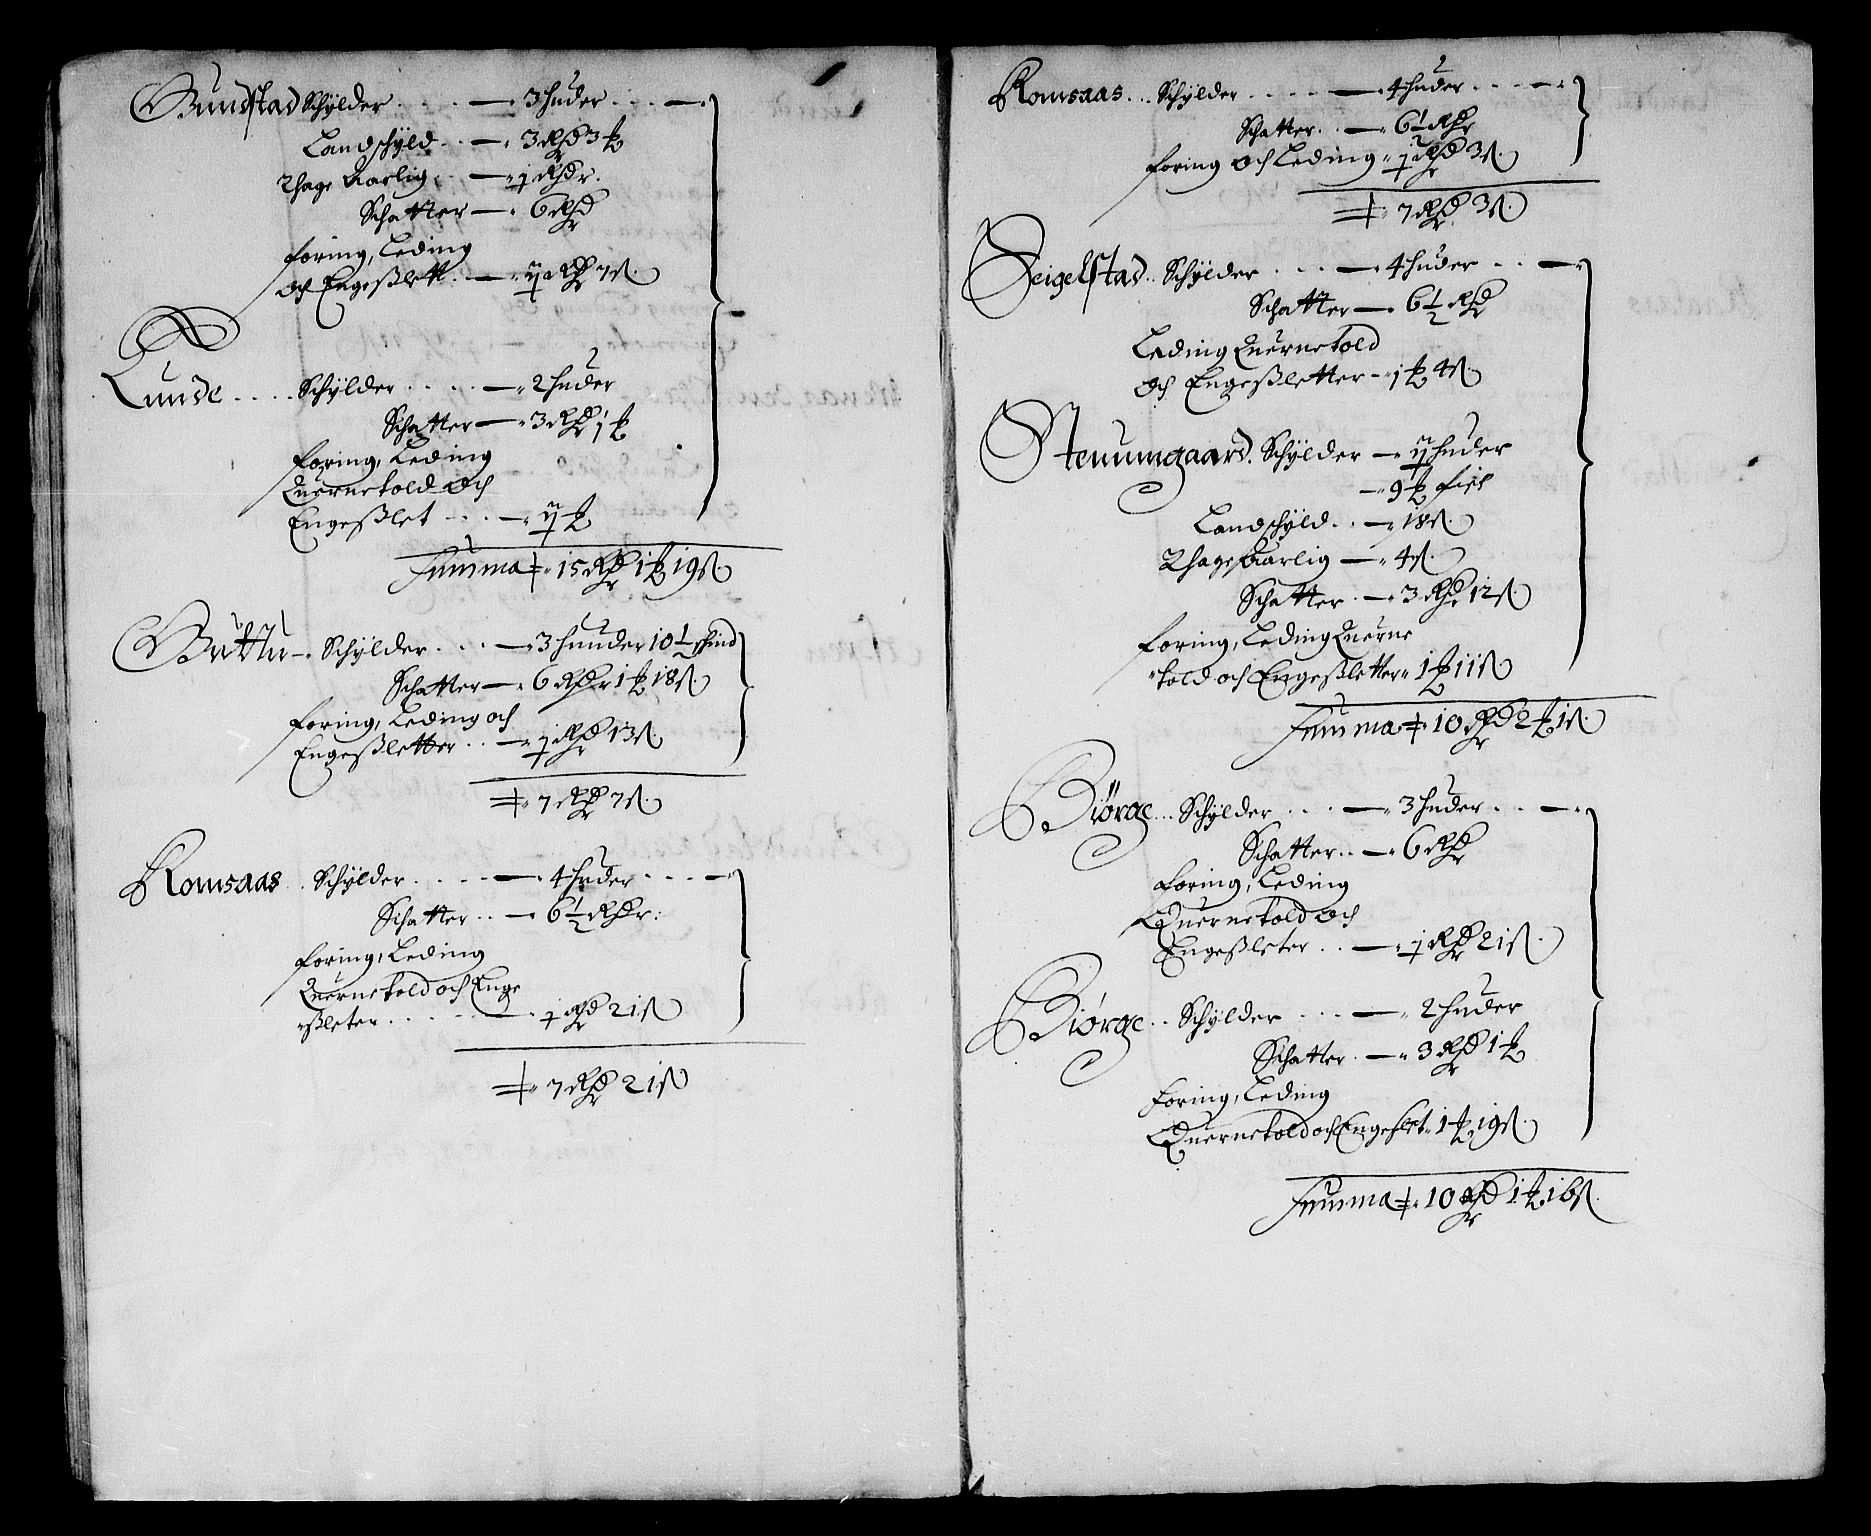 Gundstad Schÿlder .... — 3 huder ....
Landschÿld .. — 3 Rdr 3 ƶ
Thage Aarlig .. — 1 Rdr.
Schatter — 6 Rdr
foring, Leding
och Engeßlett .. — ij Rdr 7 ß.
Lunde .... Schÿlder .... — 2 huder
Schatter — 3 Rdr 1 ƶ
foring, Leding
Quernetold och
Engeßlet ... — ij ƶ
Summa 15 Rdr 1 ƶ 19 ß.
Schÿlder ... — 3 hunder 10 ½ schind
Schatter — 6 Rdr 1 ƶ 18 ß
foring, Leding och
Engeßletter .. — 1 Rdr 13 ß.
7 Rdr 7 ß.
Romsaas .. Schÿlder .... — 4 huder ....
Schatter .. — 6 ½ Rdr.
foring, Leding
Quernetold och Enge
ßleter ..... 1 Rdr 21 ß
7 Rdr 21 ß
Romsaas ... Schÿlder .... — 4 huder ....
Schatter .. — 6 ½ Rdr
foring och Leding 1 Rdr 3 ß.
7 Rdr 3 ß
Seigelstad .. Schÿlder .... — 4 huder ..
Schatter — 6 ½ Rdr
Leding Quernetold
och Engeßletter — 1 ƶ 4 ß.
Stenumgaard. Schÿlder — ij huder
— 9 ƶ fisk
Landschÿld .. — 18 ß.
Thage Aarlig — 4 ß.
Schatter .. — 3 Rdr 12 ß
foring, Leding Querne
told och Engeßletter 1 ƶ 11 ß
Summa 10 Rdr 2 ƶ 1 ß.
Biörge ... Schÿlder .... — 3 huder ...
Schatter .. — 6 Rdr
foring, Leding
Quernetold och
Engeßleter .. — 1 Rdr 21 ß.
Biörge .. Schÿlder .... — 2 huder
Schatter .. — 3 Rdr 1 ƶ
foring, Leding
Quernetold och Engeslet 1 ƶ 19 ß.
Summa 10 Rdr 1 ƶ 16 ß.